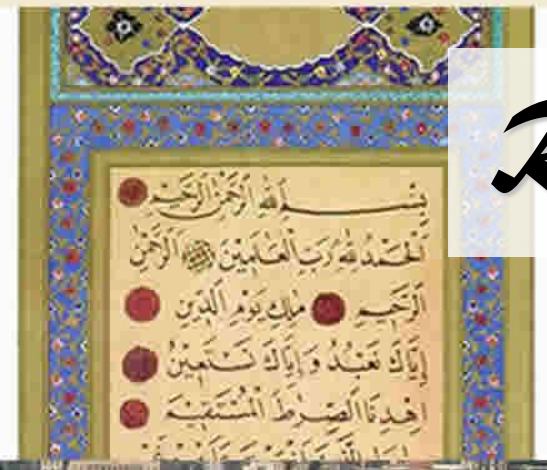 بِسْمِ اللهِ الرَّحْمٰنِ الرَّحِيمِ
اَلْحَمْدُ لِلهِ رَبِّ الْعَالَمِينَ الرَّحْمٰنِ
الرَّحِيمِ مٰلِكِ يَوْمِ الدِّينِ
إِيَّاكَ نَعْبُدُ وَإِيَّاكَ نَسْتَعِينُ
اِهْدِنَا الصِّرَاطَ الْمُسْتَقِيمَ